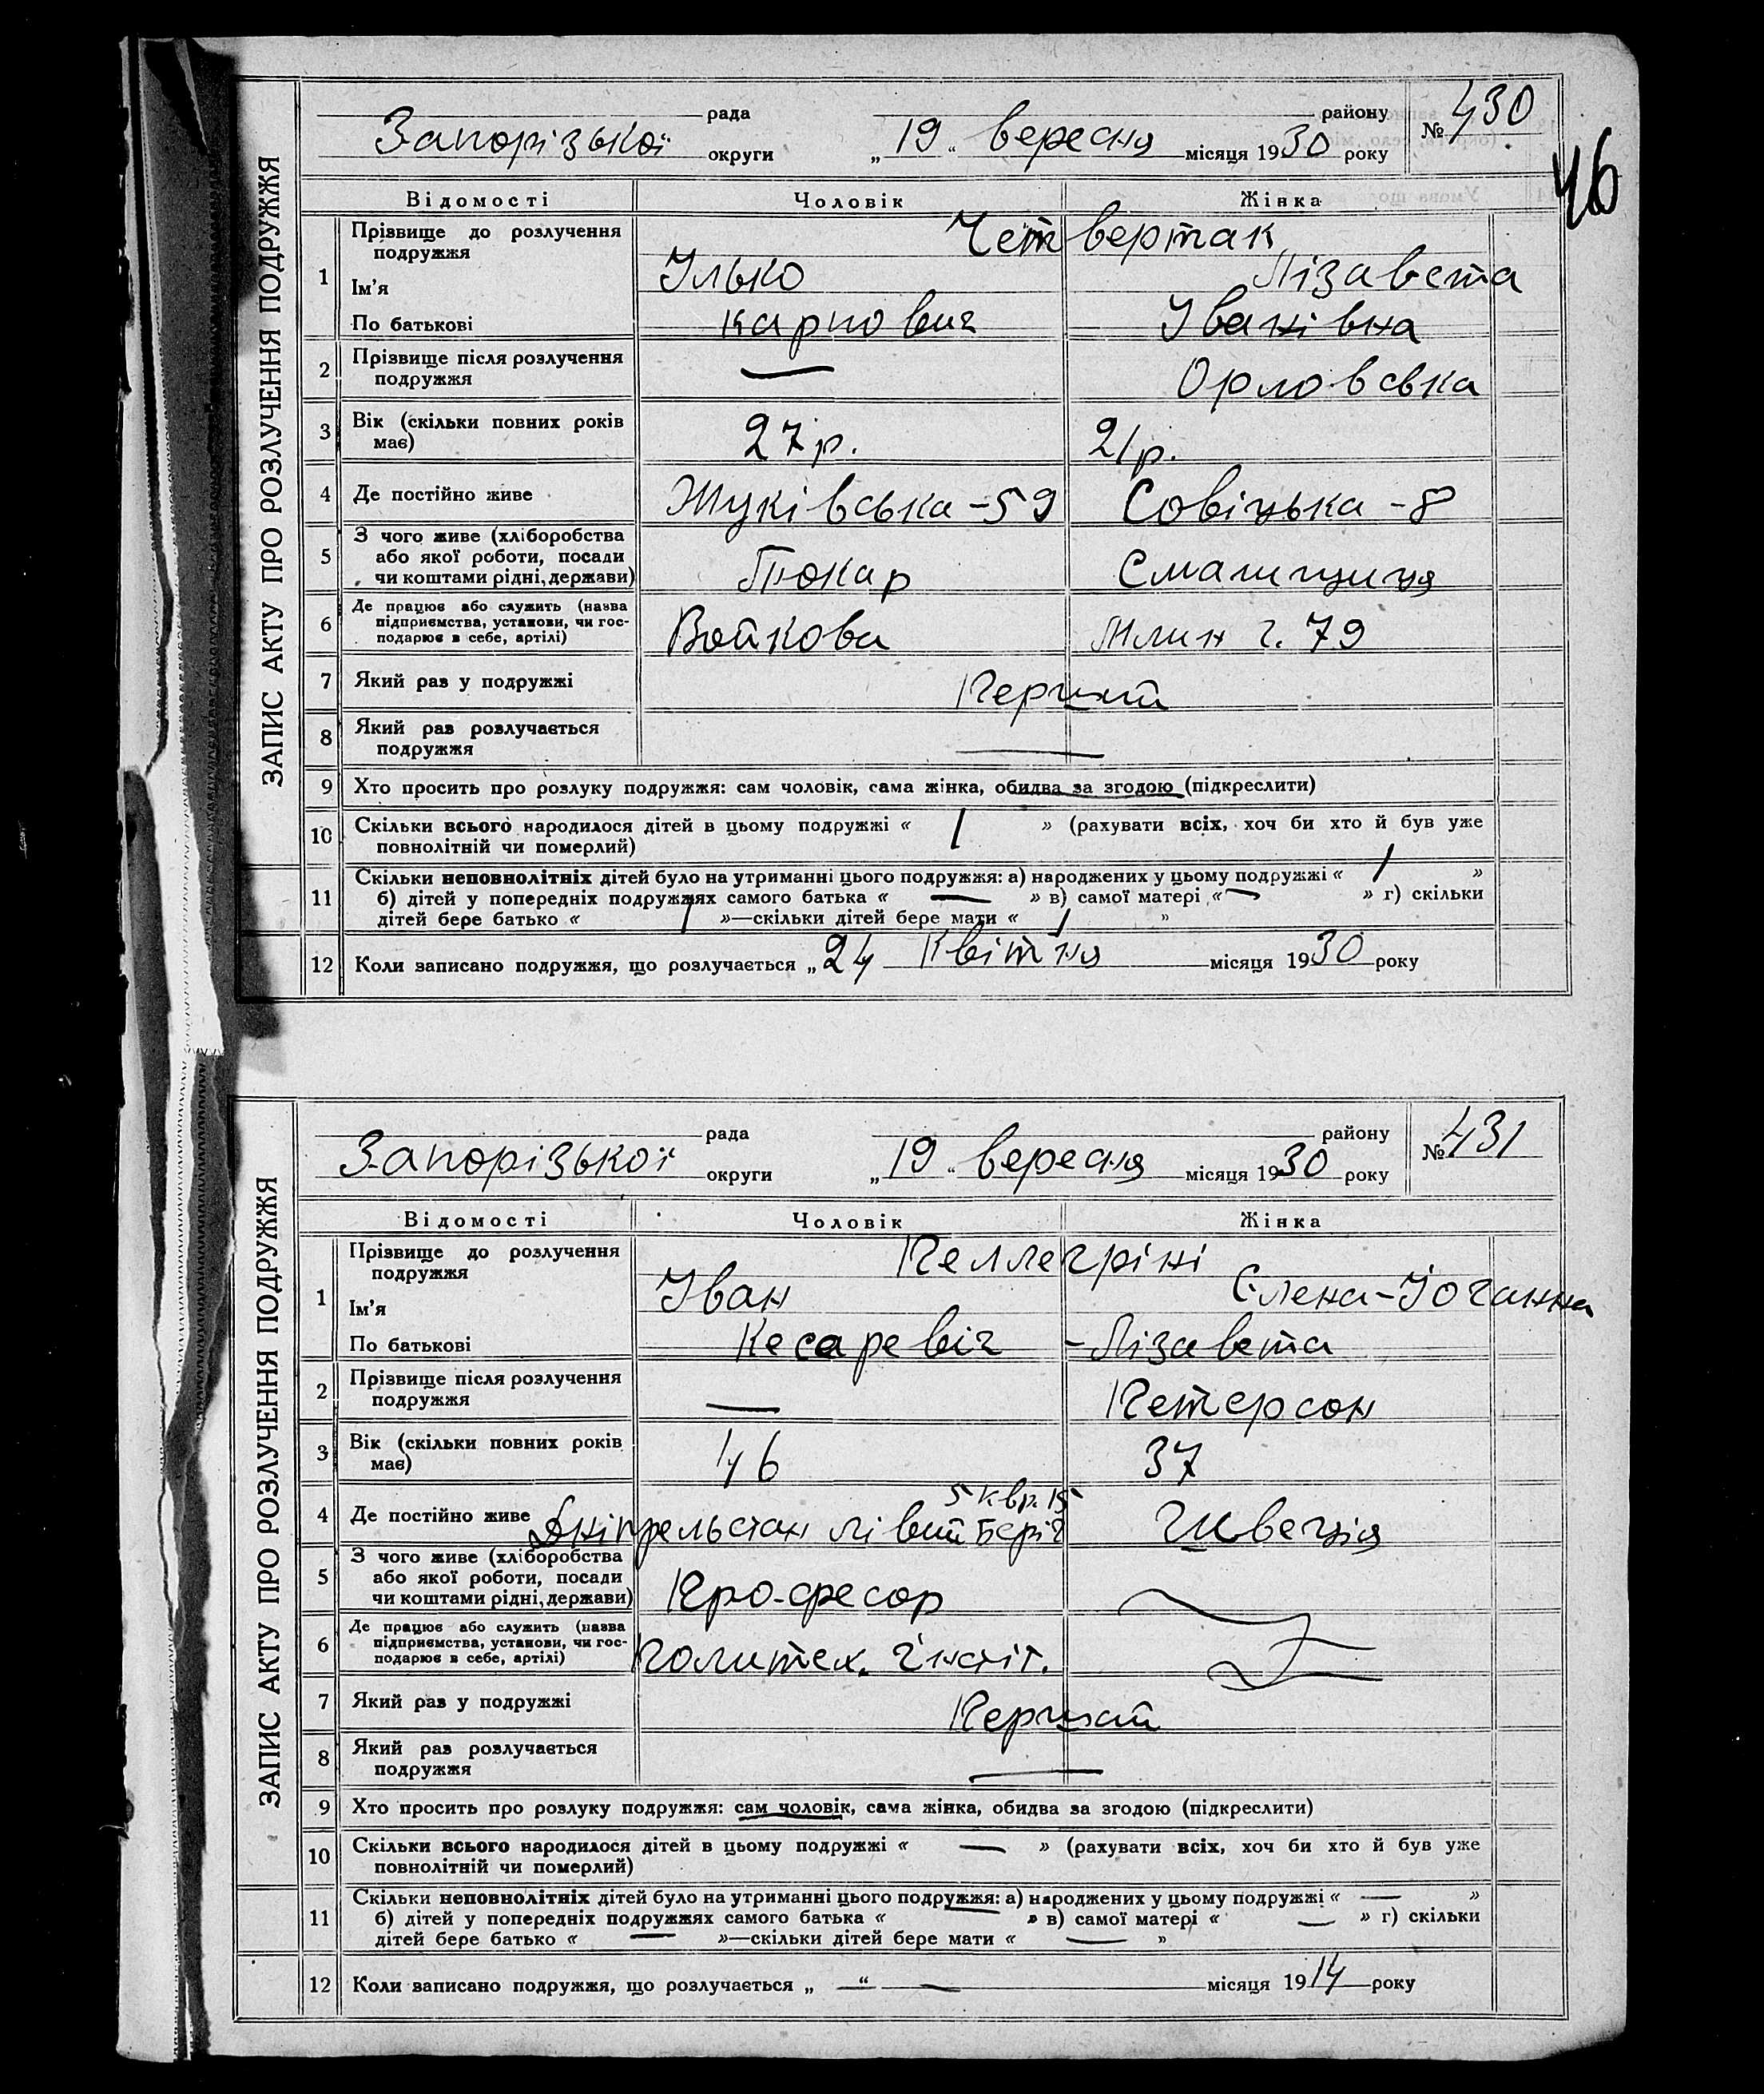 ЗАПИС АКТУ ПРО РОЗЛУЧЕННЯ ПОДРУЖЖЯ
рада району № 430
Запорізької округи „19“ вересня місяця 1930 року
46
Відомості Чоловік Жінка
1 Прізвище до розлучення подружжя Четвертак
Ім'я Ілько Лізавета
По батькові Карпович Іванівна
2 Прізвище після розлучення подружжя — Орловська
3 Вік (скільки повних років має) 27 р. 21 р.
4 Де постійно живе Жуківська - 59 Совіцька - 8
5 З чого живе (хліборобства або якої роботи, посади чи коштами рідні, держави) Токар
6 Де працює або служить (назва підприємства, установи, чи господарює в себе, артілі) Войкова Млин ч. 79
7 Який раз у подружжі Перший
8 Який раз розлучається подружжя —
9 Хто просить про розлуку подружжя: сам чоловік, сама жінка, обидва за згодою (підкреслити)
10 Скільки всього народилося дітей в цьому подружжі « 1 » (рахувати всіх, хоч би хто й був уже
повнолітній чи померлий)
11 Скільки неповнолітніх дітей було на утриманні цього подружжя: а) народжених у цьому подружжі « 1 »
б) дітей у попередніх подружжях самого батька « — » в) самої матері « — » г) скільки
дітей бере батько « 1 »—скільки дітей бере мати « 1 »
12 Коли записано подружжя, що розлучається „24 Квітня місяця 1930 року
ЗАПИС АКТУ ПРО РОЗЛУЧЕННЯ ПОДРУЖЖЯ
рада району № 431
Запорізької округи „19“ вересня місяця 1930 року
Відомості Чоловік Жінка
1 Прізвище до розлучення подружжя Пеллегріні
Ім'я Іван Єлена-Йоганна
По батькові Кесаревіч -Лізавета
2 Прізвище після розлучення подружжя — Петерсон
3 Вік (скільки повних років має) 46 37
5 кв. 15
4 Де постійно живе Дніпрельстан лівий беріг Швеція
5 З чого живе (хліборобства або якої роботи, посади чи коштами рідні, держави) Професор
6 Де працює або служить (назва підприємства, установи, чи господарює в себе, артілі) Політех. Інстіт.
7 Який раз у подружжі Перший
8 Який раз розлучається подружжя —
9 Хто просить про розлуку подружжя: сам чоловік, сама жінка, обидва за згодою (підкреслити)
10 Скільки всього народилося дітей в цьому подружжі « — » (рахувати всіх, хоч би хто й був уже
повнолітній чи померлий)
11 Скільки неповнолітніх дітей було на утриманні цього подружжя: а) народжених у цьому подружжі « — »
б) дітей у попередніх подружжях самого батька « — » в) самої матері « — » г) скільки
дітей бере батько « — »—скільки дітей бере мати « — »
12 Коли записано подружжя, що розлучається „ — “ — місяця 1914 року